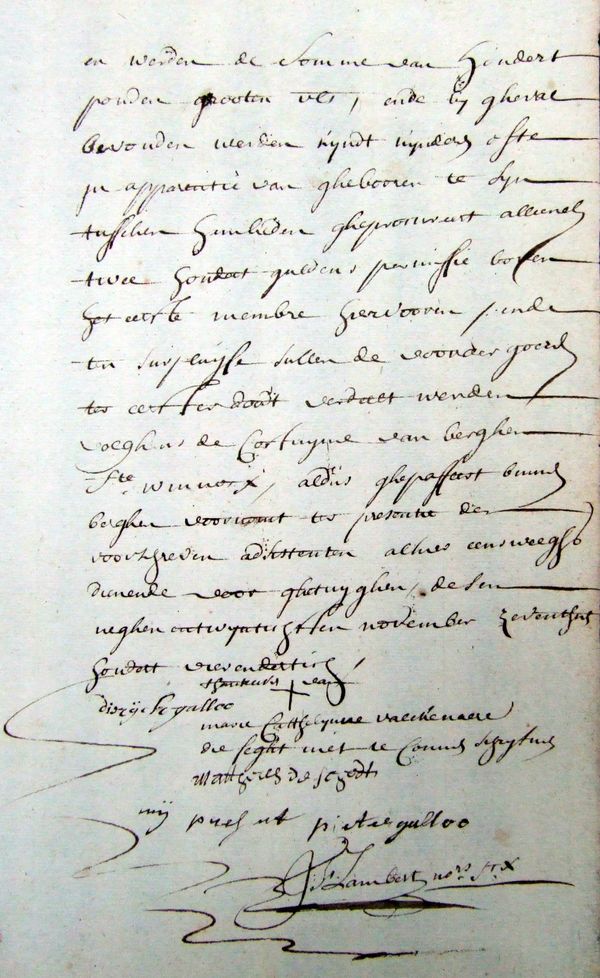 en werden de somme van hondert
ponden grooten vls, ende by gheval
bevonden werden kyndt kynders ofte
in apparentie van ghebooren te syn
tusschen hunlieden gheprocureert alleenel
twee hondert guldens permissie boven
het eerste membre hiervooren, ende
ten surpluysse sullen de voorder goed
ter eerster doodt verdeelt werden
volghens de Costuyme van berghen
Ste winnocx, aldus ghepasseert binnen
berghen voornomt ter presentie der
voorschreven adsistenten alhier eensweeghs
dienende voor ghetuyghen, desen
neghenentwyntichsten november zeventhien
hondert vierendertich,
dierijck galloo
thantmerck van
marie Catthelynne vaeckenaere
die seght niet te Connen schryfven
Mattheus de schodt
mij present pieter galloo
Lambert nors Sx